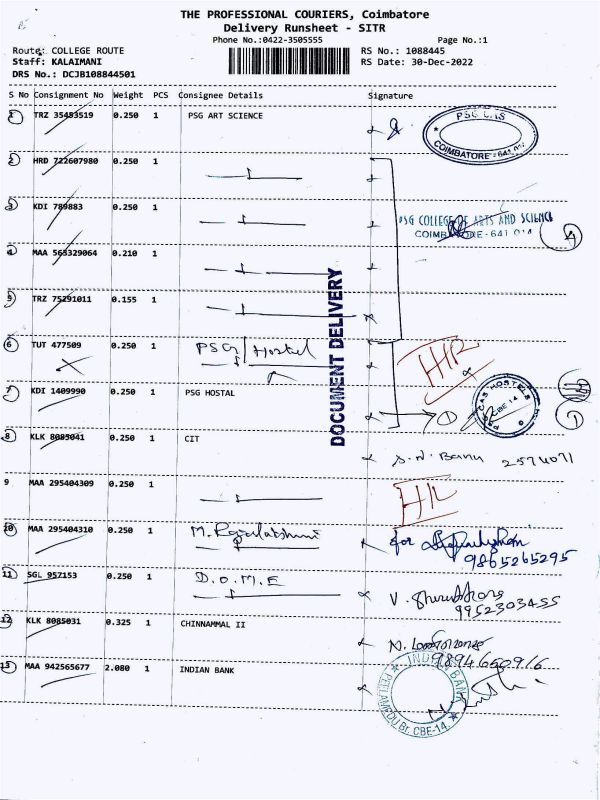 THE PROFESSIONAL COURIERS, Coimbatore
Delivery Runsheet - SITR
Phone No.:0422-3505555 Page No.:1
Route: COLLEGE ROUTE RS No.: 1088445
Staff: KALAIMANI RS Date: 30-Dec-2022
DRS No.: DCJB108844501
S No Consignment No Weight PCS Consignee Details Signature
1 TRZ 35453519 0.250 1 PSG ART SCIENCE
PSG CAS
COIMBATORE - 641 014
2 HRD 722607980 0.250 1
3 KDI 789883 0.250 1
PSG COLLEGE OF ARTS AND SCIENCE
COIMBATORE - 641 014
4 MAA 563329064 0.210 1
5 TRZ 75291011 0.155 1
DOCUMENT DELIVERY
6 TUT 477509 0.250 1 PSG / Hostel
7 KDI 1409990 0.250 1 PSG HOSTAL
PSG CAS HOSTELS
CBE-14
8 KLK 8085041 0.250 1 CIT
S.N. Banu 2574071
9 MAA 295404309 0.250 1
10 MAA 295404310 0.250 1 M. Rajalakshmi
for
9865265295
11 SGL 957153 0.250 1 D.O.M.E
9952303455
12 KLK 8085031 0.325 1 CHINNAMMAL II
9894660916
13 MAA 942565677 2.080 1 INDIAN BANK
INDIAN BANK
PEELAMEDU Br. CBE-14.